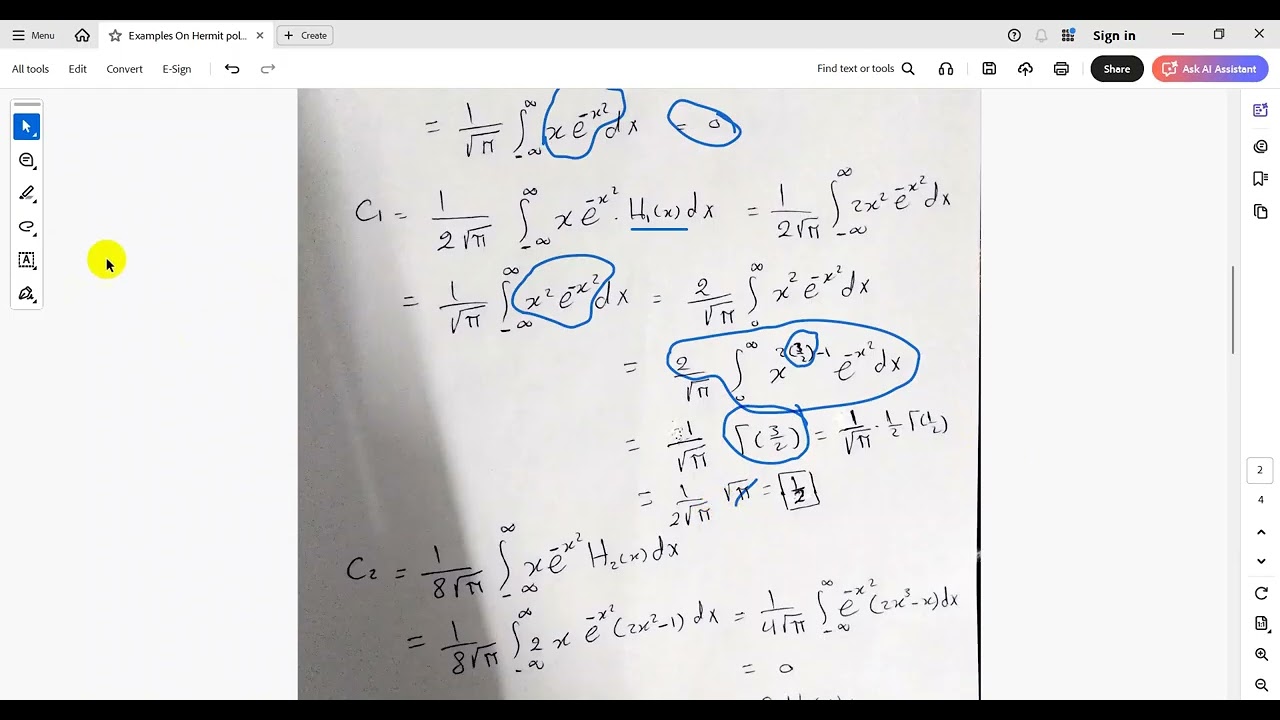 Menu
Examples On Hermit pol...
Create
Sign in
All tools Edit Convert E-Sign
Find text or tools
Share
Ask AI Assistant
= 1/√π ∫_{-∞}^{∞} x e^{-x²} dx = 0
C₁ = 1/(2√π) ∫_{-∞}^{∞} x e^{-x²} · H₁(x) dx = 1/(2√π) ∫_{-∞}^{∞} 2x² e^{-x²} dx
= 1/√π ∫_{-∞}^{∞} x² e^{-x²} dx = 2/√π ∫_{0}^{∞} x² e^{-x²} dx
= 2/√π ∫_{0}^{∞} x^{2(3/2)-1} e^{-x²} dx
= 1/√π Γ(3/2) = 1/√π · 1/2 Γ(1/2)
= 1/(2√π) √π = 1/2
C₂ = 1/(8√π) ∫_{-∞}^{∞} x e^{-x²} H₂(x) dx
= 1/(8√π) ∫_{-∞}^{∞} 2 x e^{-x²} (2x²-1) dx = 1/(4√π) ∫_{-∞}^{∞} e^{-x²} (2x³-x) dx
= 0
2
4